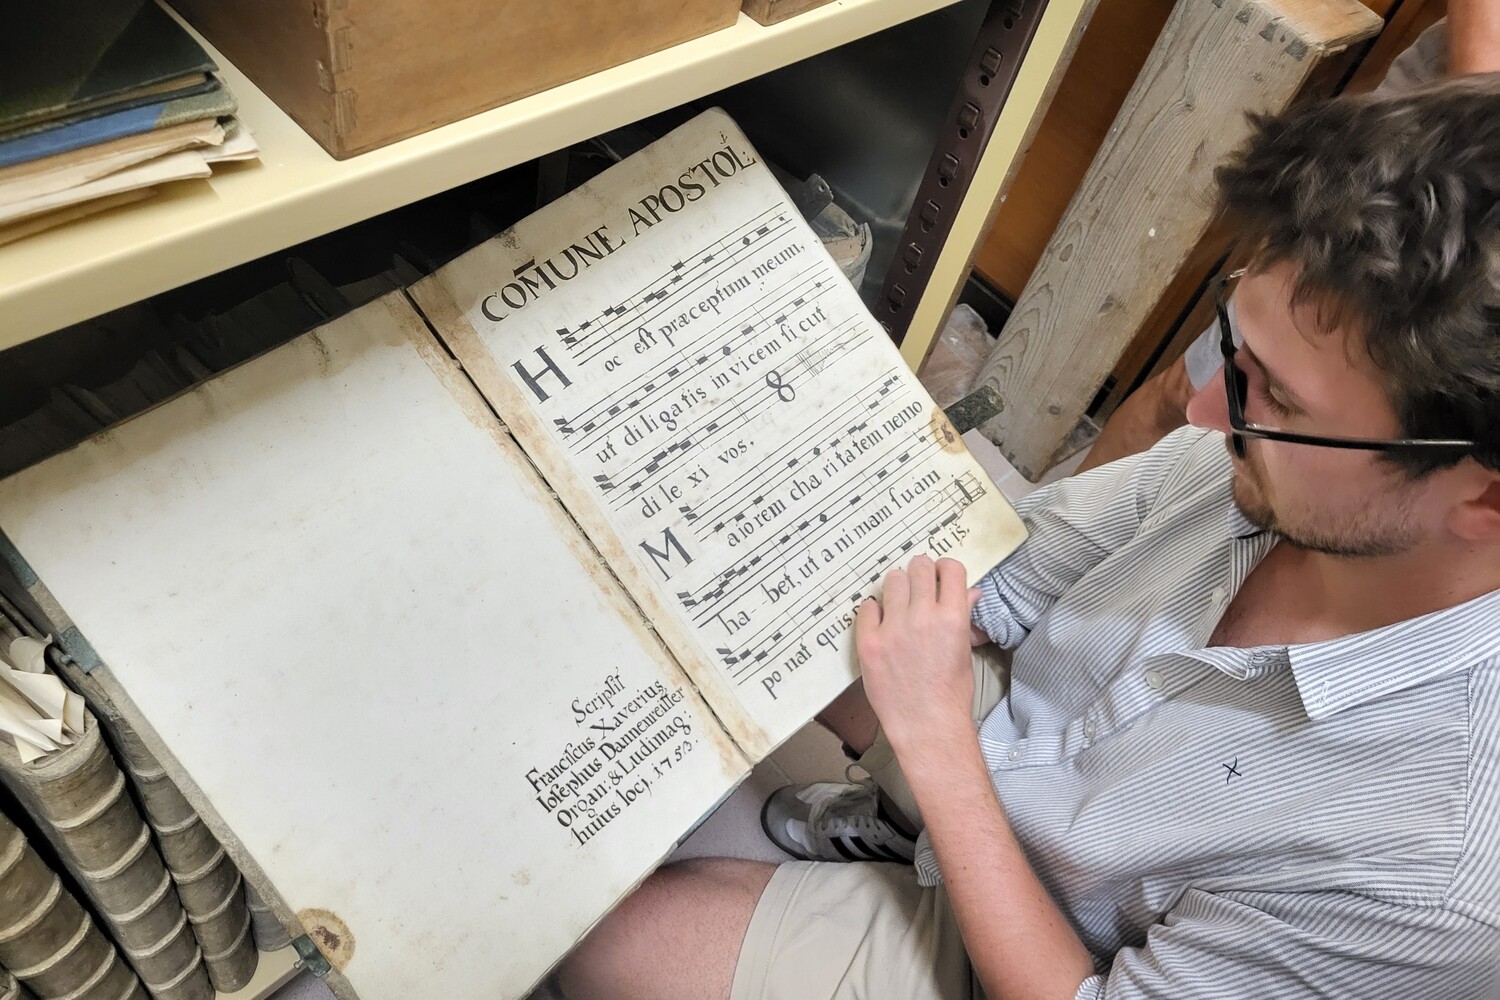 Scripsit
Franciscus Xaverius
Iosephus Dannenreitter
Organ: & Ludimag:
huius locj. 1753.
COM̄UNE APOSTOL:
Hoc est præceptum meum,
ut diligatis invicem sicut
dilexi vos. 8
Maiorem charitatem nemo
ha- bet, ut animam suam
ponat quis suis.